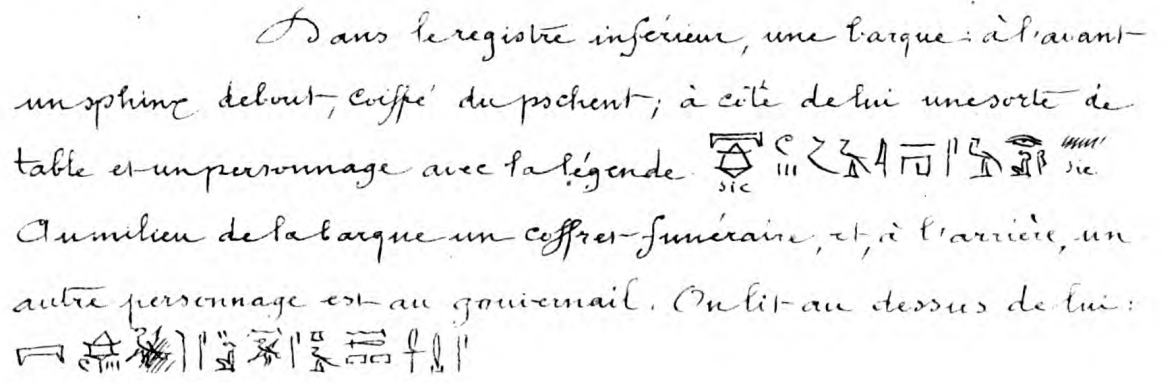 Dans le registre inférieur, une barque : à l'avant
un sphinx debout, coiffé du pschent ; à côté de lui une sorte de
table et un personnage avec la légende sic sic
Au milieu de la barque un coffret funéraire, et, à l'arrière, un
autre personnage est au gouvernail. On lit au dessus de lui :